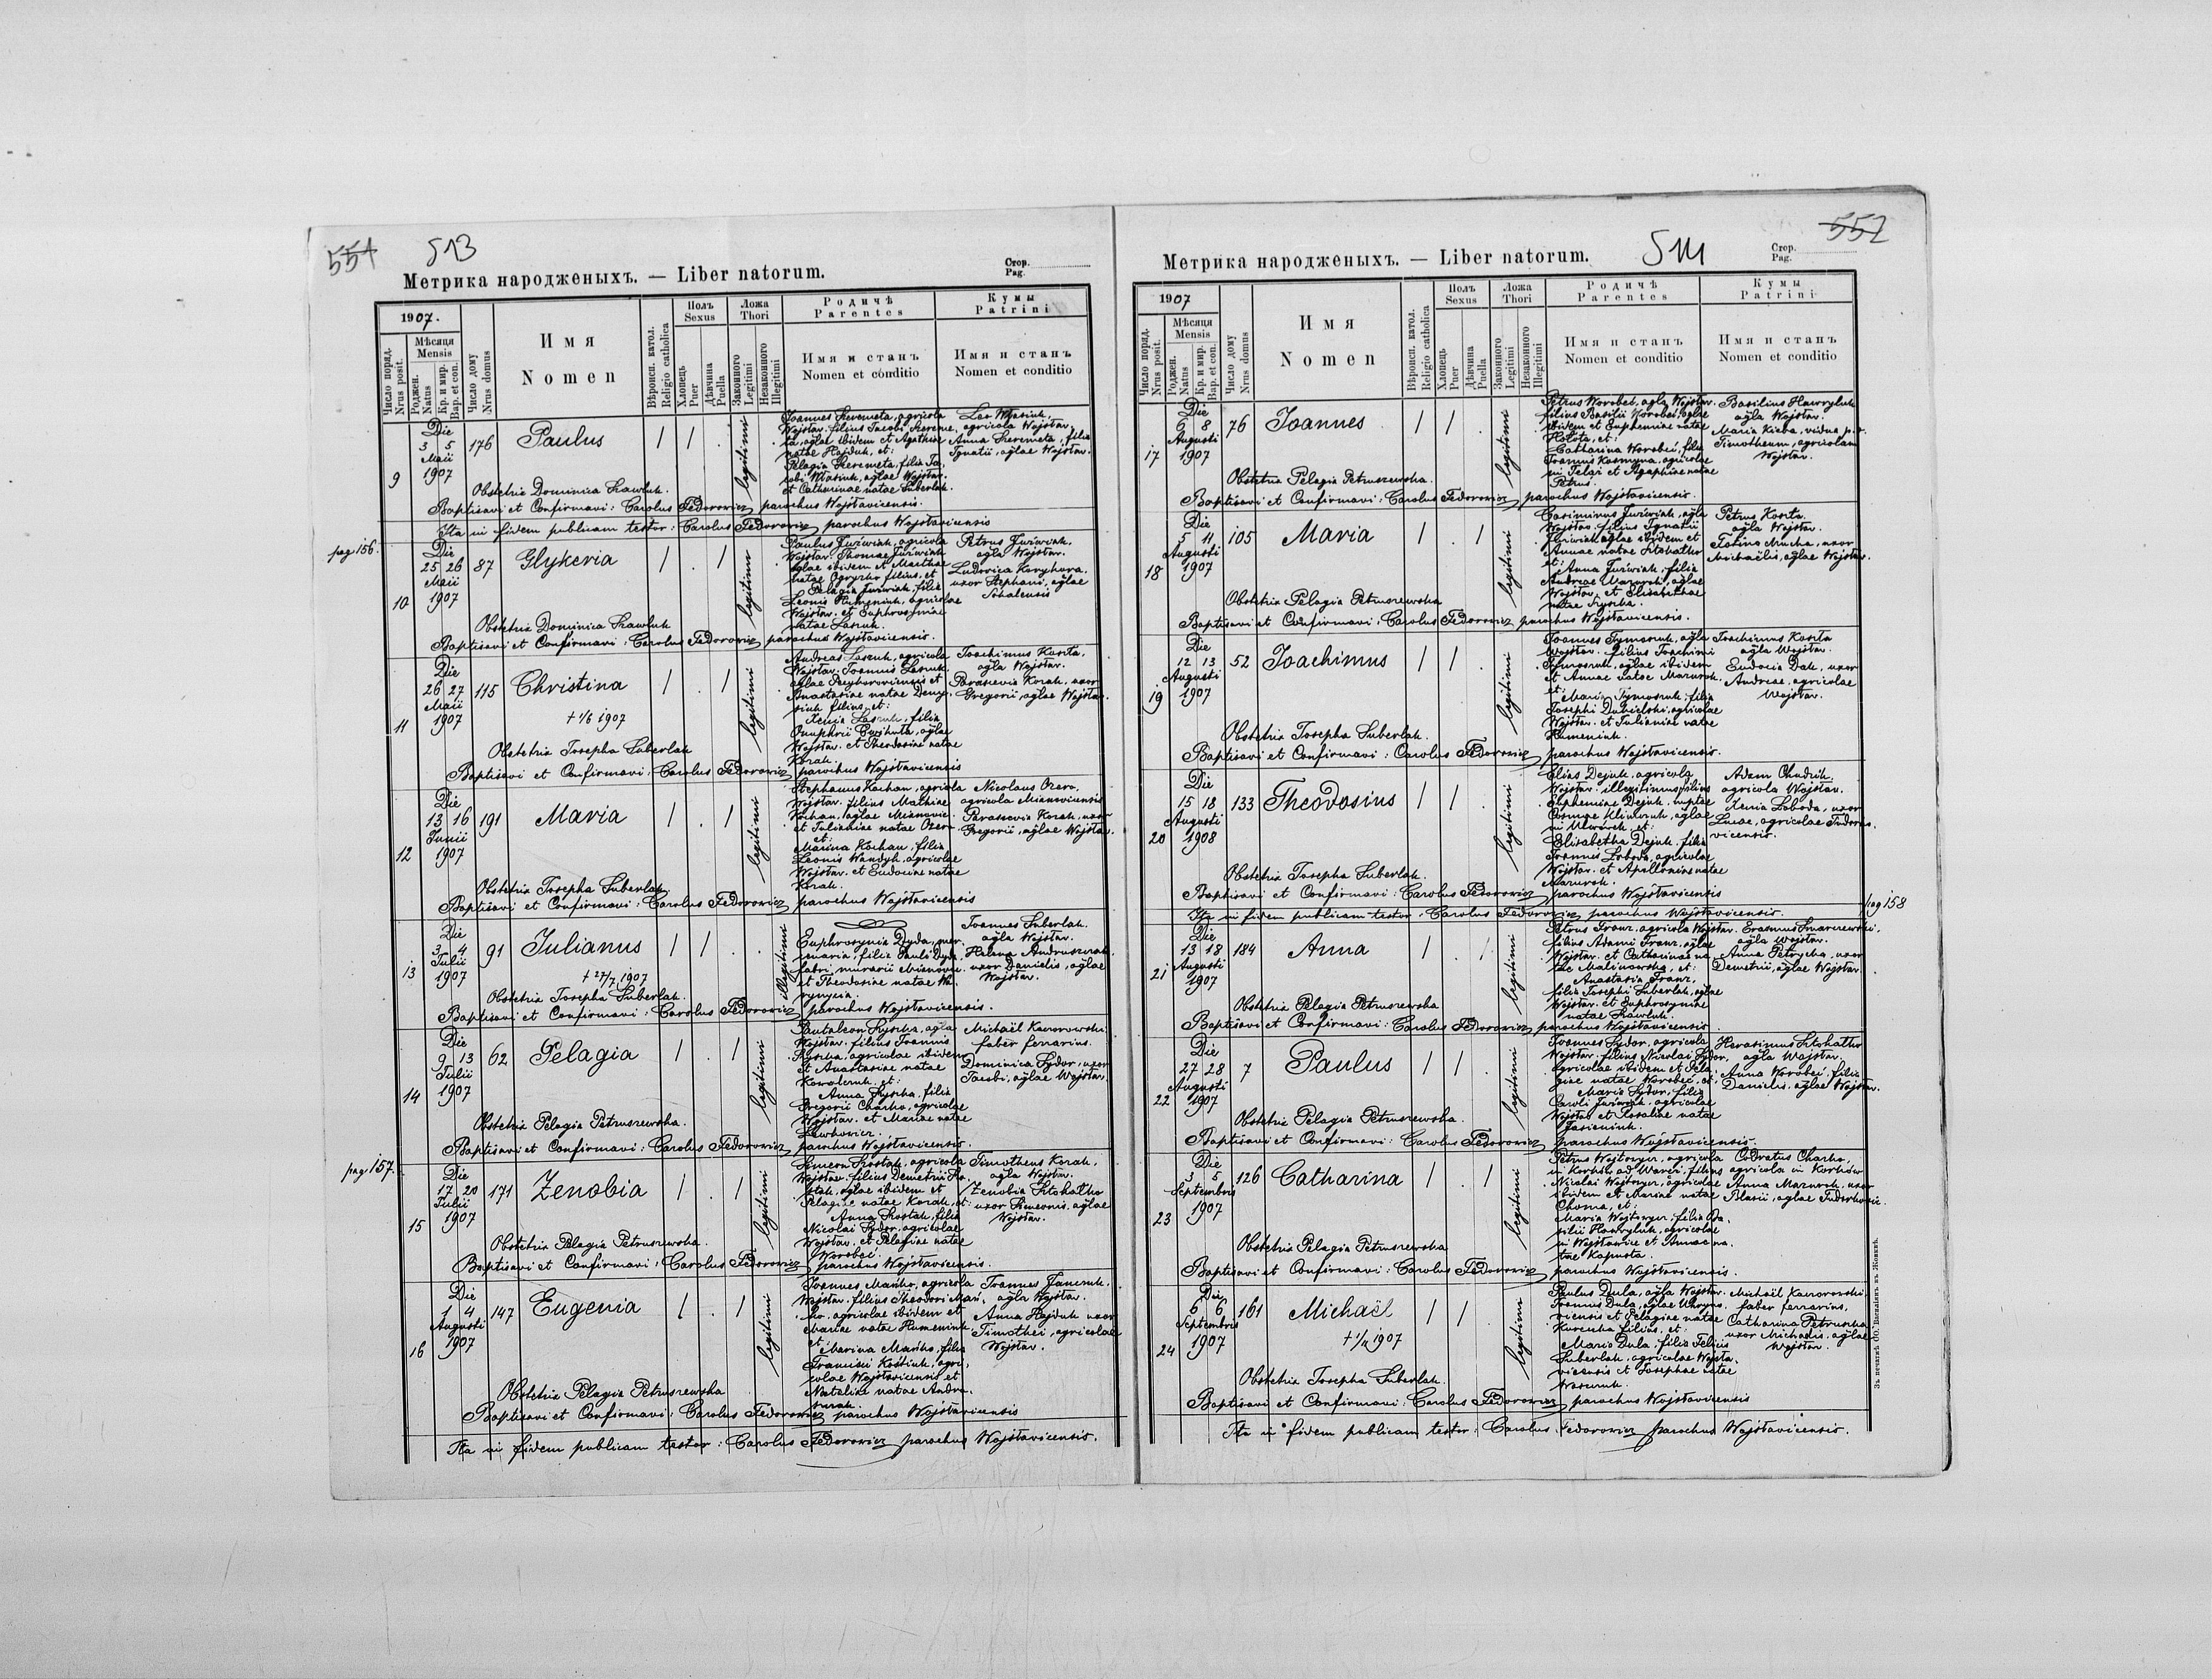 551 513
Метрика народженыхъ. — Liber natorum.
Стор.
Pag.
1907.
Число поряд.
Nrus posit.
Мѣсяця
Mensis
Роджен.
Natus
Кр. и мир.
Bap. et con.
Число дому
Nrus domus
Имя
Nomen
Вѣроисп. катол.
Religio catholica
Полъ
Sexus
Хлопець
Puer
Дѣвчина
Puella
Ложа
Thori
Законного
Legitimi
Незаконного
Illegitimi
Родичѣ
Parentes
Имя и станъ
Nomen et conditio
Кумы
Patrini
Имя и станъ
Nomen et conditio
9
Die
3 5
Maii
1907
176
Paulus
1 1 .
legitimi
Joannes Szeremeta, agricola
Wojsław. filius Jacobi Szereme-
ta, aglae ibidem et Agathiae
natae Hajduk, et:
Pelagia Szeremeta, filia Ja-
cobi Wasiuk, aglae Wojsław.
et Catharinae natae Suberlak.
Leo Wasiuk,
agricola Wojsław.
Anna Szeremeta, filia
Ignatii, aglae Wojsław.
Obstetrix Dominica Szawluk.
Baptisavi et Confirmavi: Carolus Fedorowicz parochus Wojsławicensis.
Ita in fidem publicam testor: Carolus Fedorowicz parochus Wojsławicensis
pag 156.
10
Die
25 26
Maii
1907
87
Glykeria
1 . 1
legitimi
Paulus Juźwiak, agricola
Wojsław. Thomae Juźwiak
aglae ibidem et Marthae
natae Ogryzko filius, et
Pelagia Juźwiak, filia
Leonis Humeniuk, agricolae
Wojsław. et Euphrosyniae
natae Laszuk.
Petrus Juźwiak,
agla Wojsław.
Ludovica Koryhora,
uxor Stephani, aglae
Sokalensis
Obstetrix Dominica Szawluk
Baptisavi et Confirmavi: Carolus Fedorowicz parochus Wojsławicensis.
11
Die
26 27
Maii
1907
115
Christina
† 1/6 1907
1 . 1
legitimi
Andreas Laszuk, agricola
Wojsław. Joannis Laszuk,
Anastasiae natae
filius, et:
Xenia Laszuk, filia
Onuphrii
Wojsław. et Theodosiae natae
Korah.
Joachimus Kosita,
agla Wojsław.
Parascevia Korah, uxor
Gregorii, aglae Wojsław.
Obstetrix Josepha Suberlak
Baptisavi et Confirmavi: Carolus Fedorowicz parochus Wojsławicensis
12
Die
13 16
Junii
1907
191
Maria
1 . 1
legitimi
Stephanus Kochan, agricola
Wojsław. filius Mathiae
Kochan, aglae
et Julianiae natae Ozero
et:
Marina Kochan, filia
Leonis Wandyk, agricolae
Wojsław. et Eudociae natae
Korah.
Nicolaus Ozero,
agricola
Parascevia Korah, uxor
Gregorii, aglae Wojsław.
Obstetrix Josepha Suberlak.
Baptisavi et Confirmavi: Carolus Fedorowicz parochus Wojsławicensis
13
Die
3 4
Julii
1907
91
Julianus
† 27/7 1907
1 1 . .
illegitimi
Euphrosynia Dyda, mer-
cenaria, filia Pauli Dyda,
fabri murarii
et Theodosiae natae
Joannes Suberlak,
agla Wojsław.
Helena
uxor Danielis, aglae
Wojsław.
Obstetrix Josepha Suberlak.
Baptisavi et Confirmavi: Carolus Fedorowicz parochus Wojsławicensis.
14
Die
9 13
Julii
1907
62
Pelagia
1 . 1
legitimi
Pantaleon Hyszka, agla
Wojsław. filius Joannis
Hyszka, agricolae ibidem
et Anastasiae natae
Kowalczuk, et:
Anna Hyszka, filia
Gregorii Charko, agricolae
Wojsław. et Mariae natae
Lewkowicz.
Michaël Kaczorowski
faber ferrarius.
Dominica Sydor, uxor
Jacobi, aglae Wojsław.
Obstetrix Pelagia Petruszewska.
Baptisavi et Confirmavi: Carolus Fedorowicz parochus Wojsławicensis.
pag: 157.
15
Die
17 20
Julii
1907
171
Zenobia
1 . 1
legitimi
Simeon Szostak, agricola
Wojsław. filius Demetrii Szo-
stak, aglae ibidem et
Pelagiae natae Korah, et:
Anna Szostak, filia
Nicolai Sydor, agricolae
Wojsław. et Pelagiae natae
Worobec.
Timotheus Korah,
agla Wojsław.
Zenobia Sztokałko
uxor Simeonis, aglae
Wojsław.
Obstetrix Pelagia Petruszewska.
Baptisavi et Confirmavi: Carolus Fedorowicz parochus Wojsławicensis.
16
Die
1 4
Augusti
1907
147
Eugenia
1 . 1
legitimi
Joannes Mańko, agricola
Wojsław. filius Theodori Mań-
ko, agricolae ibidem et
Mariae natae Humeniuk,
et
Marina Mańko, filia
Francisci Kostiuk, agri-
colae Wojsławicensis et
Nataliae natae Andru-
szczak.
Joannes Janczuk,
agla Wojsław.
Anna Hajduk uxor
Timothei, agricolae
Wojsław.
Obstetrix Pelagia Petruszewska
Baptisavi et Confirmavi: Carolus Fedorowicz parochus Wojsławicensis
Ita in fidem publicam testor: Carolus Fedorowicz parochus Wojsławicensis.
552 514
Метрика народженыхъ. — Liber natorum.
Стор.
Pag.
1907
Число поряд.
Nrus posit.
Мѣсяця
Mensis
Роджен.
Natus
Кр. и мир.
Bap. et con.
Число дому
Nrus domus
Имя
Nomen
Вѣроисп. катол.
Religio catholica
Полъ
Sexus
Хлопець
Puer
Дѣвчина
Puella
Ложа
Thori
Законного
Legitimi
Незаконного
Illegitimi
Родичѣ
Parentes
Имя и станъ
Nomen et conditio
Кумы
Patrini
Имя и станъ
Nomen et conditio
17
Die
6 8
Augusti
1907
76
Joannes
1 1 .
legitimi
Petrus Worobec, agla Wojsław.
filius Basilii Worobec, aglae
ibidem et Euphemiae natae
Hołota, et:
Catharina Worobec, filia
Joannis Kosmyna, agricolae
in Telaz et Agaphiae natae
Petrus.
Basilius Hawryluk
agla Wojsław.
Maria Kicba, vidua p.
Timotheum, agricolam
Wojsław.
Obstetrix Pelagia Petruszewska.
Baptisavi et Confirmavi: Carolus Fedorowicz parochus Wojsławicensis.
18
Die
5 11
Augusti
1907
105
Maria
1 . 1
legitimi
Casimirus Juźwiak, agla
Wojsław. filius Ignatii
Juźwiak, aglae ibidem et
Annae natae Sztokałko
et: Anna Juźwiak, filia
Andreae Mazurok, aglae
Wojsław. et Elisabethae
natae Hyszka.
Petrus Kosita
agla Wojsław.
Fotina Mucha, uxor
Michaëlis, aglae Wojsław.
Obstetrix Pelagia Petruszewska
Baptisavi et Confirmavi: Carolus Fedorowicz parochus Wojsławicensis.
19
Die
12 13
Augusti
1907
52
Joachimus
1 1 .
legitimi
Joannes Tymoszuk, agla
Wojsław. filius Joachimi
Tymoszuk, aglae ibidem
et Annae natae Mazurok,
et:
Maria Tymoszuk, filia
Josephi Dubielski, agricolae
Wojsław. et Julianiae natae
Humeniuk.
Joachimus Kosita
agla Wojsław.
Eudocia Dak, uxor
Andreae, agricolae
Wojsław.
Obstetrix Josepha Suberlak.
Baptisavi et Confirmavi: Carolus Fedorowicz parochus Wojsławicensis.
20
Die
15 18
Augusti
1908
133
Theodosius
1 1 .
legitimi
Elias Dejuk, agricola
Wojsław. illegitimus filius
Euphemiae Dejuk, nuptae
Cosmae Klimczuk, aglae
et:
Elisabetha Dejuk, filia
Joannis Łoboda, agricolae
Wojsław. et Apolloniae natae
Mazurok.
Adam Chudzik,
agricola Wojsław.
Xenia Łoboda, uxor
Lucae, agricolae Tudorko-
vicensis.
Obstetrix Josepha Suberlak.
Baptisavi et Confirmavi: Carolus Fedorowicz parochus Wojsławicensis
Ita in fidem publicam testor: Carolus Fedorowicz parochus Wojsławicensis.
pag 158
21
Die
13 18
Augusti
1907
184
Anna
1 . 1
legitimi
Petrus Franz, agricola Wojsław.
filius Adami Franz, aglae
Wojsław. et Catharinae na-
tae Malinowska, et:
Anastasia Franz,
filia Josephi Suberlak, aglae
Wojsław. et Euphrosyniae
natae Szawluk.
Erasmus Smarzewski,
agla Wojsław.
Anna Petrycha, uxor
Demetrii, aglae Wojsław.
Obstetrix Pelagia Petruszewska
Baptisavi et Confirmavi: Carolus Fedorowicz parochus Wojsławicensis.
22
Die
27 28
Augusti
1907
7
Paulus
1 1 .
legitimi
Joannes Sydor, agricola
Wojsław. filius Nicolai Sydor,
agricolae ibidem et Pela-
giae natae Worobec, et:
Maria Sydor, filia
Caroli Juźwiak, agricolae
Wojsław. et Rosaliae natae
Jasieniuk.
Herasimus Sztokałko
agla Wojsław.
Anna Worobec, filia
Danielis, aglae Wojsław.
Obstetrix Pelagia Petruszewska.
Baptisavi et Confirmavi: Carolus Fedorowicz parochus Wojsławicensis.
23
Die
3 5
Septembris
1907
126
Catharina
1 . 1
legitimi
Petrus Wojtowycz, agricola
in Korków ad Waręż, filius
Nicolai Wojtowycz, agricolae
ibidem et Mariae natae
Choma, et:
Maria Wojtowycz, filia Ba-
silii Hawryluk, agricolae
in Wojsławice et Annae na-
tae Kapusta.
Codratus Charko,
agricola in Korków
Anna Mazurok, uxor
Blasii, aglae
Obstetrix Pelagia Petruszewska
Baptisavi et Confirmavi: Carolus Fedorowicz parochus Wojsławicensis.
24
Die
6 6
Septembris
1907
161
Michaël
1 1 .
legitimi
Paulus Dula, agla Wojsław.
Joannis Dula, aglae
et Pelagiae natae
filius, et:
Maria Dula, filia Felicis
Suberlak, agricolae Wojsła-
vicensis et Josephae natae
Michaël Kaczorowski
faber ferrarius,
Catharina Petruszka
uxor Michaëlis, aglae
Wojsław.
Obstetrix Josepha Suberlak.
Baptisavi et Confirmavi: Carolus Fedorowicz parochus Wojsławicensis
Ita in fidem publicam testor: Carolus Fedorowicz parochus Wojsławicensis.